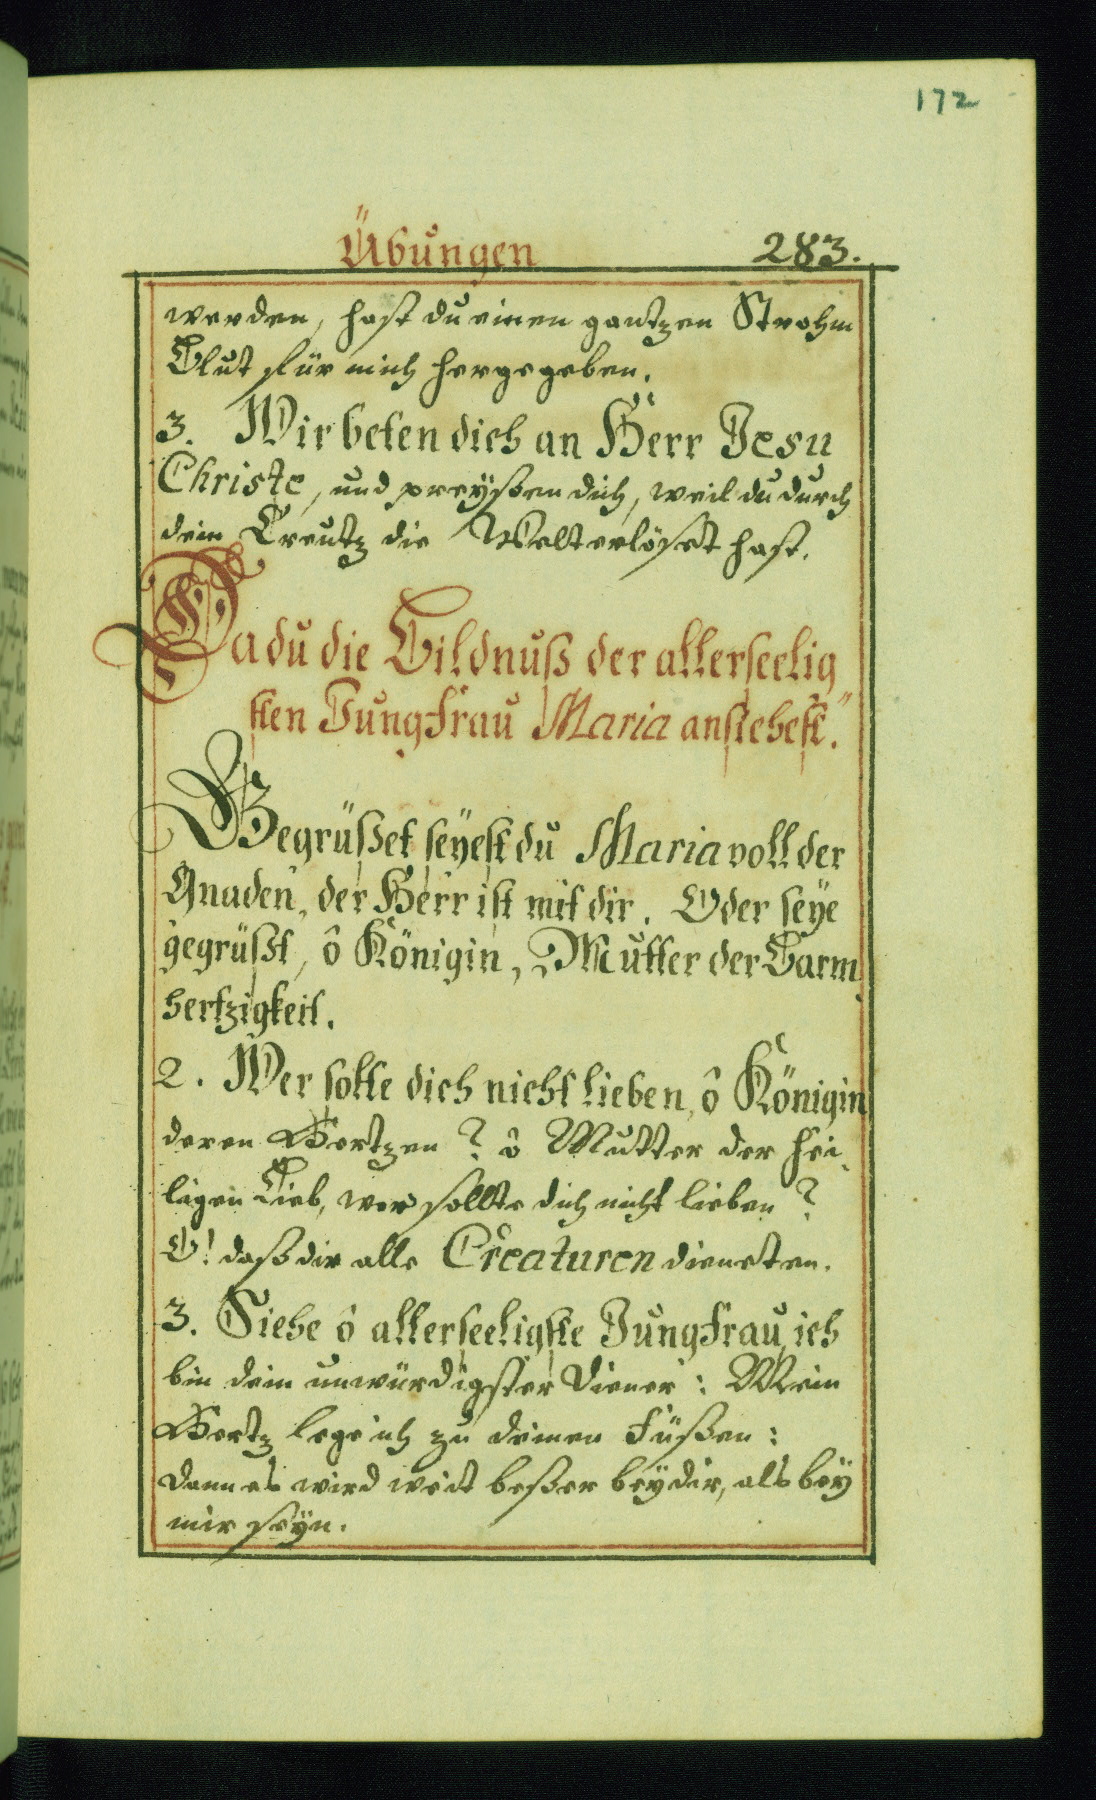 172
Übungen 283.
werden, hast du einen gantzen Strohm
Blut für mich hergegeben.
3. Wir beten dich an Herr Jesu
Christe, und preyßen dich, weil du durch
dein Creutz die Welt erlöset hast.
Da du die Bildnuß der allerseelig
sten Jungfrau Maria ansiehest.
Begrüßet seyest du Maria voll der
Gnaden, der Herr ist mit dir. Oder seye
gegrüßt, ô Königin, Mutter der Barm
hertzigkeit.
2. Wer solte dich nicht lieben, ô Königin
deren Hertzen? ô Mutter der hei
ligen Lieb, wer sollte dich nicht lieben?
O! daß dir alle Creaturen dieneten.
3. Siehe ô allerseeligste Jungfrau, ich
bin dein unwürdigster Diener: Mein
Hertz lege ich zu deinen Füßen:
dann es wird weit beßer beÿ dir, als beÿ
mir seÿn.